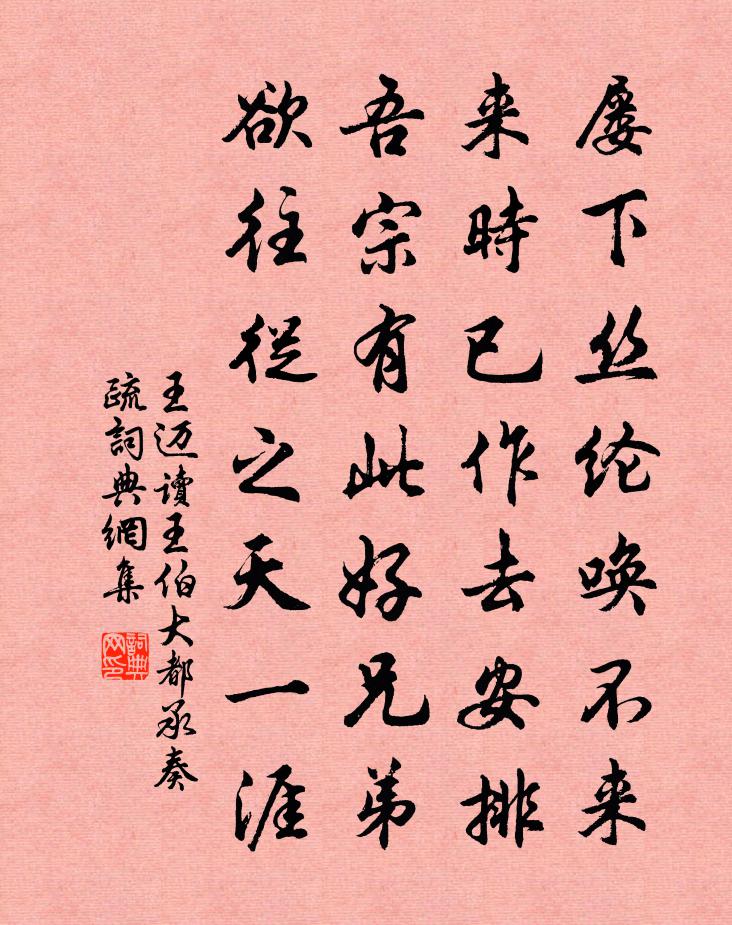 屡下丝纶唤不来
来時已作去安排
吾宗有此好兄弟
欲往從之天一涯
王迈讀王伯大都承奏
疏詞典網集
詞典网印